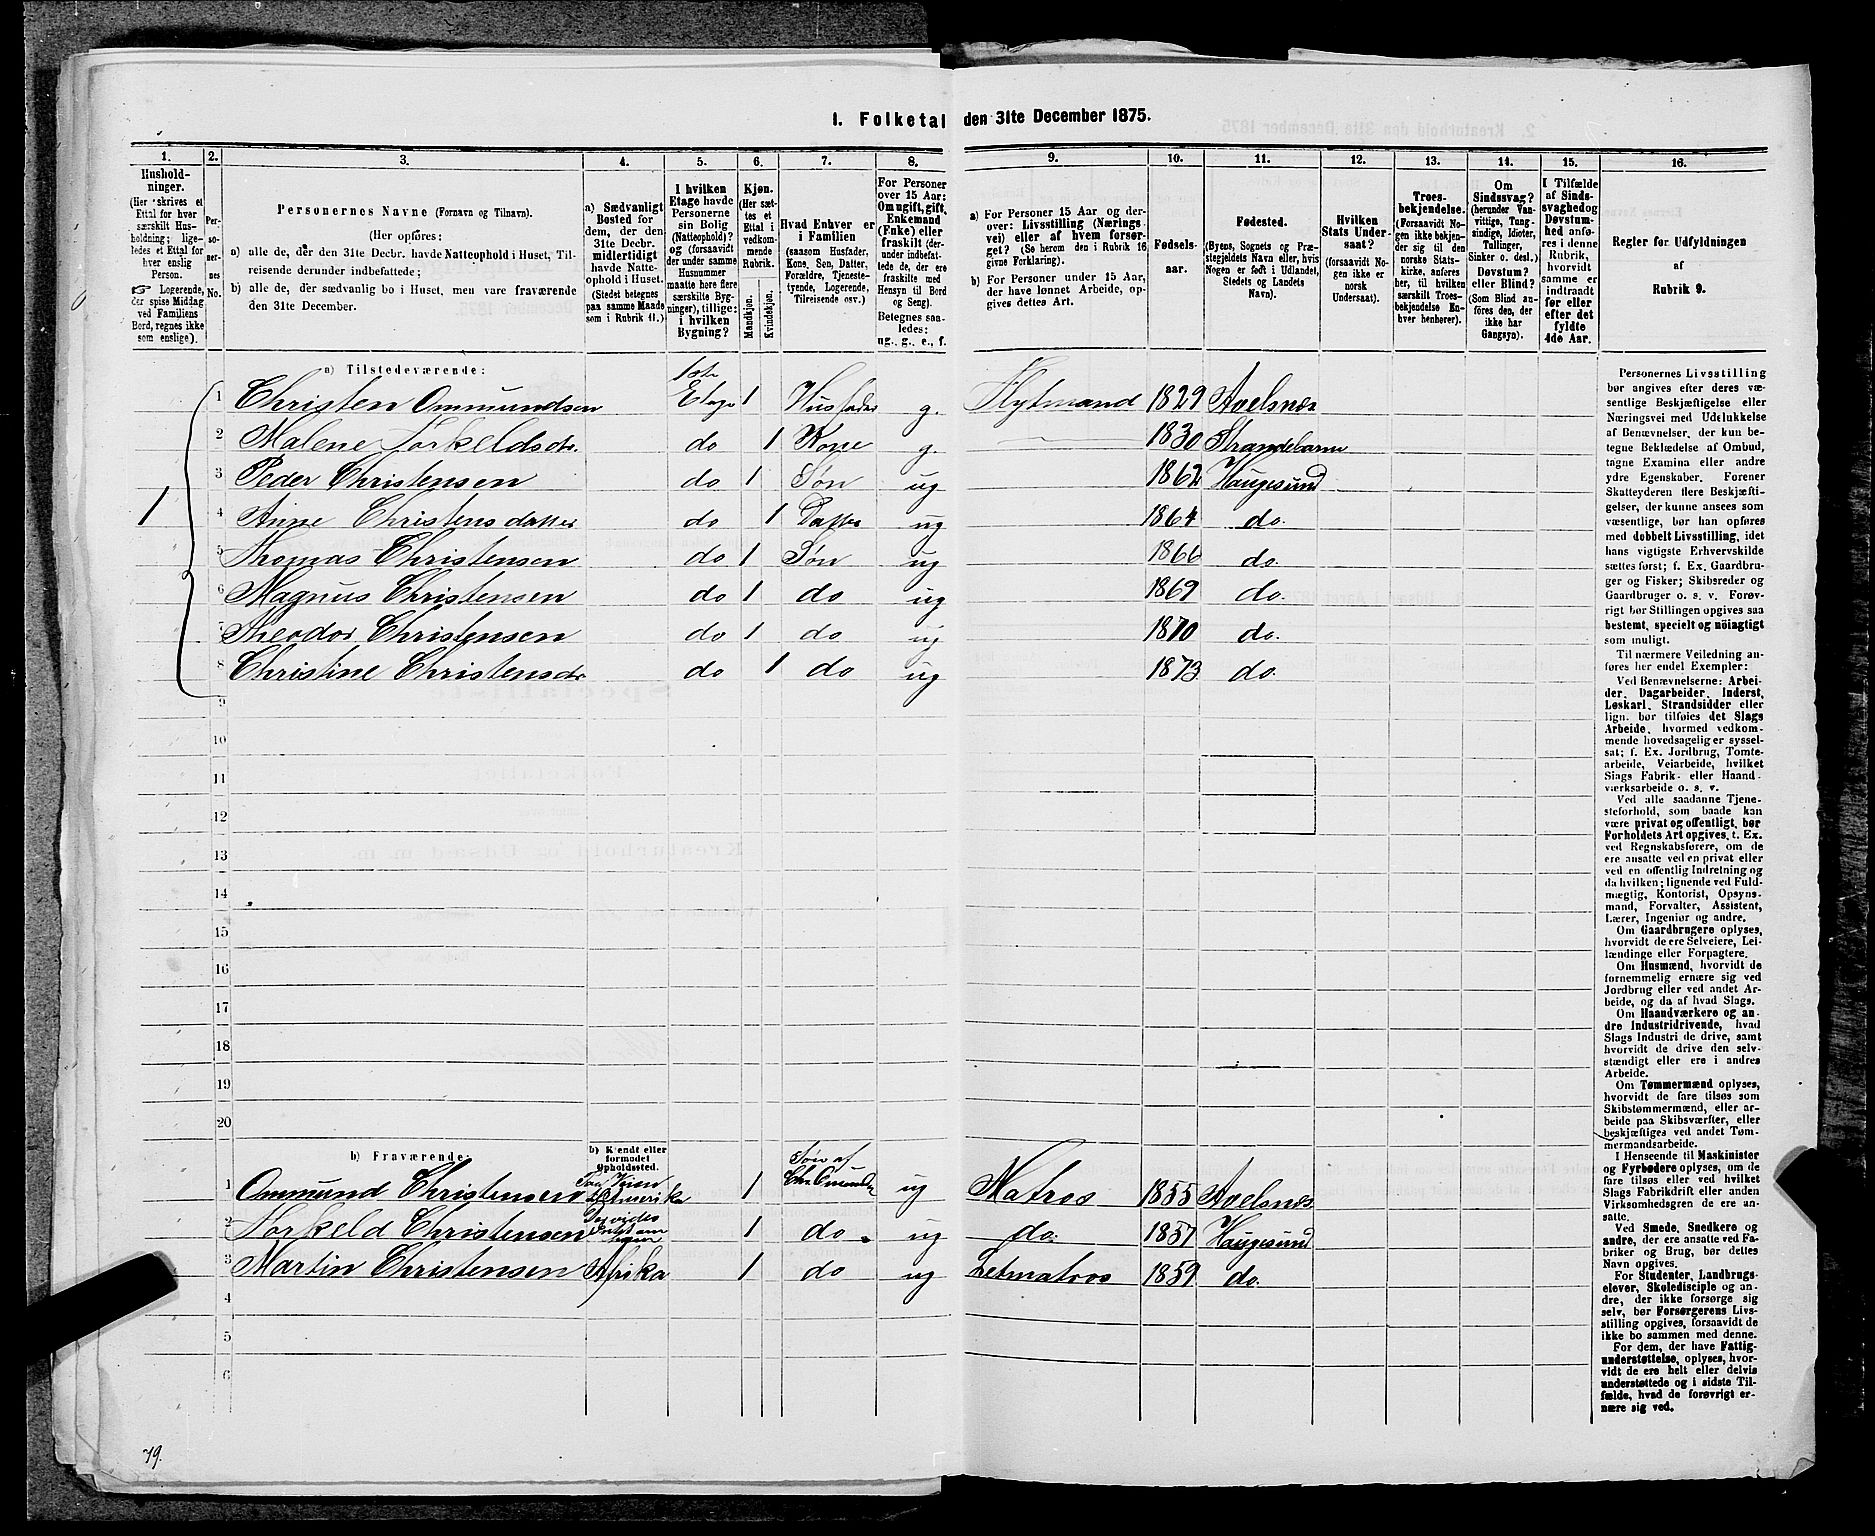 1. Folketal den 31te December 1875.
1. 2. 3. 4. 5. 6. 7. 8. 9. 10. 11. 12. 13. 14. 15. 16.
Hushold-
ninger.
(Her skrives et
Ettal for hver
særskilt Hus-
holdning; lige-
ledes et Ettal for
hver enslig
Person.
☞ Logerende,
der spise Middag
ved Familiens
Bord, regnes ikke
som enslige).
Per-
so-
ner-
nes
No.
Personernes Navne (Fornavn og Tilnavn).
(Her opføres:
a) alle de, der den 31te Decbr. havde Natteophold i Huset, Til-
reisende derunder indbefattede;
b) alle de, der sædvanlig bo i Huset, men vare fraværende
den 31te December.
a) Sædvanligt
Bosted for
dem, der den
31te Decbr.
midlertidigt
havde Natte-
ophold i Huset.
(Stedet betegnes
paa samme Maade
som i Rubrik 11.)
I hvilken
Etage havde
Personerne
sin Bolig
(Natteophold)?
og (forsaavidt
der under samme
Husnummer
maatte høre flere
særskilte Byg-
ninger), tillige:
i hvilken
Bygning?
Kjøn.
(Her sæt-
tes et
Ettal i
vedkom-
mende
Rubrik.
Mandkjøn.
Kvindekjøn.
Hvad Enhver er
i Familien
(saasom Husfader,
Kone, Søn, Datter,
Forældre, Tjeneste-
tyende, Logerende,
Tilreisende osv.)
For Personer
over 15 Aar:
Om ugift, gift,
Enkemand
(Enke) eller
fraskilt (der-
under indbefat-
tede de, der ere
fraskilte med
Hensyn til Bord
og Seng).
Betegnes saa-
ledes:
ug., g., e., f.
a) For Personer 15 Aar og der-
over: Livsstilling (Nærings-
vei) eller af hvem forsør-
get? (Se herom den i Rubrik 16
givne Forklaring).
b) For Personer under 15 Aar,
der have lønnet Arbeide, op-
gives dettes Art.
Fødsels-
aar.
Fødested.
(Byens, Sognets og Præ-
stegjeldets Navn eller, hvis
Nogen er født i Udlandet,
Stedets og Landets
Navn).
Hvilken
Stats Under-
saat?
(forsaavidt No-
gen ikke er
norsk
Undersaat).
Troes-
bekjendelse.
(Forsaavidt No-
gen ikke bekjen-
der sig til den
norske Stats-
kirke, anføres
her, til hvilken
særskilt Troes-
bekjendelse En-
hver henhører).
Om
Sindssvag?
(herunder Van-
vittige, Tung-
sindige, Idioter,
Tullinger,
Sinker o. desl.)
Døvstum?
eller Blind?
(Som Blind an-
føres den, der
ikke har
Gangsyn).
I Tilfælde
af Sinds-
svaghed og
Døvstum-
hed anfø-
res i denne
Rubrik,
hvorvidt
samme er
indtraadt
før eller
efter det
fyldte
4de Aar.
Regler for Udfyldningen
af
Rubrik 9.
a) Tilstedeværende:
1 1 Christen Ommundsen 1ste Etage 1 Husfader g. 1829 Avelsnæs
2 Malene Torkeldsdr. do 1 Kone g. 1830 Strandebarm
3 Peder Christensen do 1 Søn ug 1862 Haugesund
4 Anne Christensdatter do 1 Datter ug 1864 do.
5 Thomas Christensen do 1 Søn ug 1866 do.
6 Magnus Christensen do 1 do ug 1869 do.
7 Theodor Christensen do 1 do ug 1870 do.
8 Christine Christensdr do 1 do ug 1873 do.
9
10
11
12
13
14
15
16
17
18
19
20
b) Fraværende:
b) Kjendt eller
formodet
Opholdssted.
1 Ommund Christensen Amerika 1 Søn af ug Matros 1855 Avelsnæs
2 Torkeld Christensen 1 do. ug do. 1857 Haugesund
3 Martin Christensen Afrika 1 do ug Letmatros 1859 do.
4
5
6
Personernes Livsstilling
bør angives efter deres væ-
sentlige Beskjæftigelse eller
Næringsvei med Udelukkelse
af Benævnelser, der kun be-
tegne Beklædelse af Ombud,
tagne Examina eller andre
ydre Egenskaber. Forener
Skatteyderen flere Beskjæfti-
gelser, der kunne ansees som
væsentlige, bør han opføres
med dobbelt Livsstilling, idet
hans vigtigste Erhvervskilde
sættes først; f. Ex. Gaardbru-
ger og Fisker; Skibsreder og
Gaardbruger o. s. v. Forøv-
rigt bør Stillingen opgives saa
bestemt, specielt og nöiagtigt
som muligt.
Til nærmere Veiledning an-
føres her endel Exempler:
Ved Benævnelserne: Arbei-
der, Dagarbeider, Inderst,
Løskarl, Strandsidder eller
lign. bør tilføies det Slags
Arbeide, hvormed vedkom-
mende hovedsagelig er syssel-
sat; f. Ex. Jordbrug, Tomte-
arbeide, Veiarbeide, hvilket
Slags Fabrik- eller Haand-
værksarbeide o. s. v.
Ved alle saadanne Tjene-
steforhold, som baade kan
være privat og offentligt, bør
Forholdets Art opgives, t. Ex.
ved Regnskabsførere, om de
ere ansatte ved en privat eller
ved en offentlig Indretning og
da hvilken; lignende ved Fuld-
mægtig, Kontorist, Opsyns-
mand, Forvalter, Assistent,
Lærer, Ingeniør og andre.
Om Gaardbrugere oplyses,
hvorvidt de ere Selveiere, Lei-
lændinge eller Forpagtere.
Om Husmænd, hvorvidt de
fornemmelig ernære sig ved
Jordbrug eller ved andet Ar-
beide, og da af hvad Slags.
Om Haandværkere og an-
dre Industridrivende, hvad
Slags Industri de drive, samt
hvorvidt de drive den selv-
stændigt eller ere i andres
Arbeide.
Om Tømmermænd oplyses,
hvorvidt de fare tilsøs som
Skibstømmermænd, eller ar-
beide paa Skibsværfter, eller
beskjæftiges ved andet Tøm-
mermandsarbeide.
I Henseende til Maskinister
og Fyrbødere oplyses, om de
fare tilsøs eller ved hvilket
Slags Fabrikdrift eller anden
Virksomhedsgren de ere an-
satte.
Ved Smede, Snedkere og
andre, der ere ansatte ved Fa-
briker og Brug, bør dettes
Navn opgives.
For Studenter, Landbrugs-
elever, Skoledisciple og an-
dre, der ikke forsørge sig
selv, bør Forsørgerens Livs-
stilling opgives, forsaavidt de
ikke bo sammen med denne.
For dem, der have Fattig-
understøttelse, oplyses, hvor-
vidt de ere helt eller delvis
understøttede og i sidste Til-
fælde, hvad de forøvrigt er-
nære sig ved.
79.